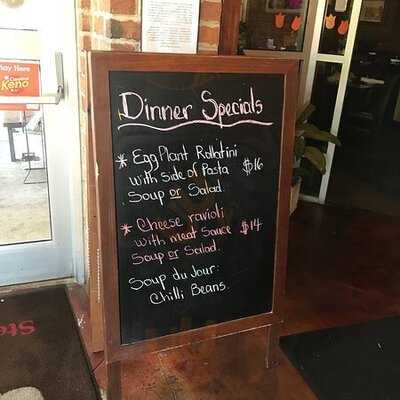 Play Here
KENO
Dinner Specials
* Egg Plant Rollatini
with Side of Pasta $16
Soup or Salad.
* Cheese ravioli
with meat Sauce $14
Soup or Salad.
Soup du Jour:
Chilli Beans.